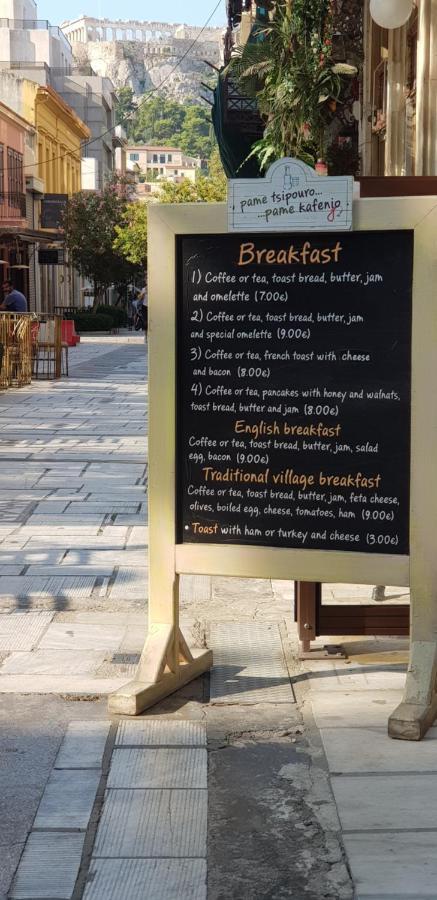 pame tsipouro...
...pame kafenio
Breakfast
1) Coffee or tea, toast bread, butter, jam
and omelette (7.00€)
2) Coffee or tea, toast bread, butter, jam
and special omelette (9.00€)
3) Coffee or tea, french toast with cheese
and bacon (8.00€)
4) Coffee or tea, pancakes with honey and walnats,
toast bread, butter and jam (8.00€)
English breakfast
Coffee or tea, toast bread, butter, jam, salad
egg, bacon (9.00€)
Traditional village breakfast
Coffee or tea, toast bread, butter, jam, feta cheese,
olives, boiled egg, cheese, tomatoes, ham (9.00€)
• Toast with ham or turkey and cheese (3.00€)